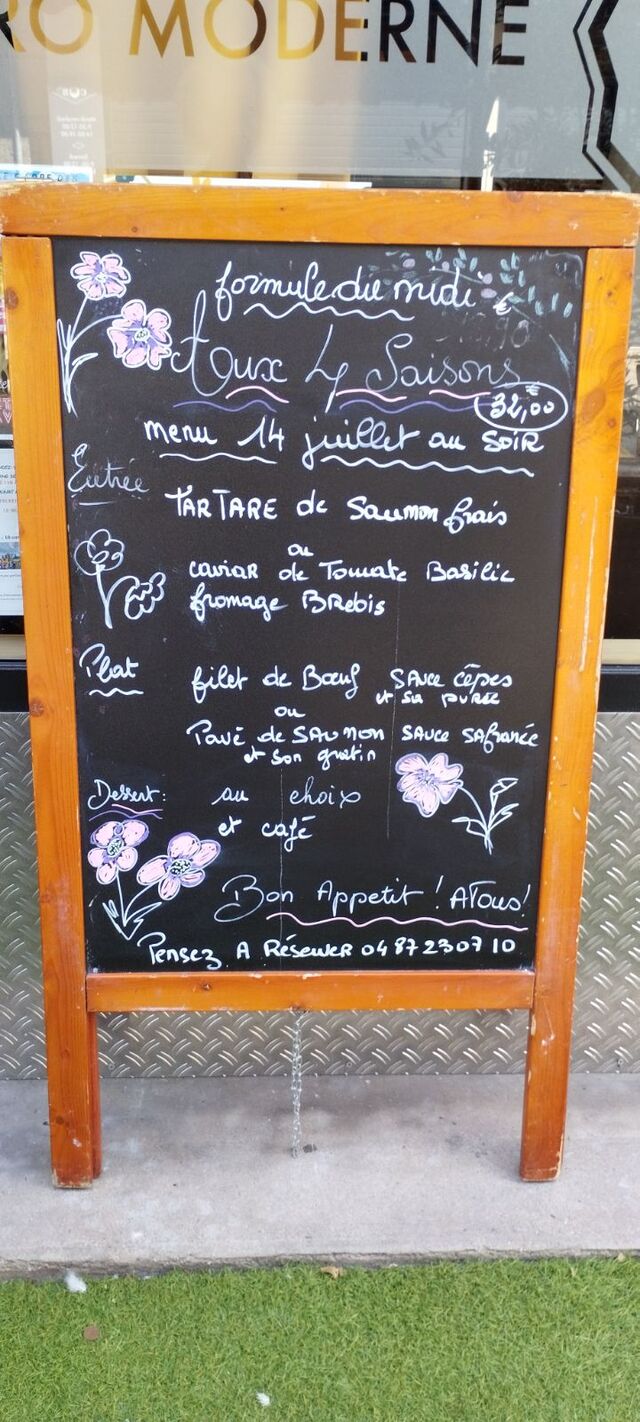 RO MODERNE
formule du midi €
Aux 4 Saisons
32,00€
menu 14 juillet au SOIR
Entrée
TARTARE de Saumon frais
ou
caviar de Tomate Basilic
fromage BRebis
Plat
filet de Bœuf SAuce cèpes
et sa purée
ou
Pavé de SAumon SAuce SAfranée
et son gratin
Dessert: au choix
et café
Bon Appetit ! ATous!
Pensez A RéseRveR 04 87 23 07 10